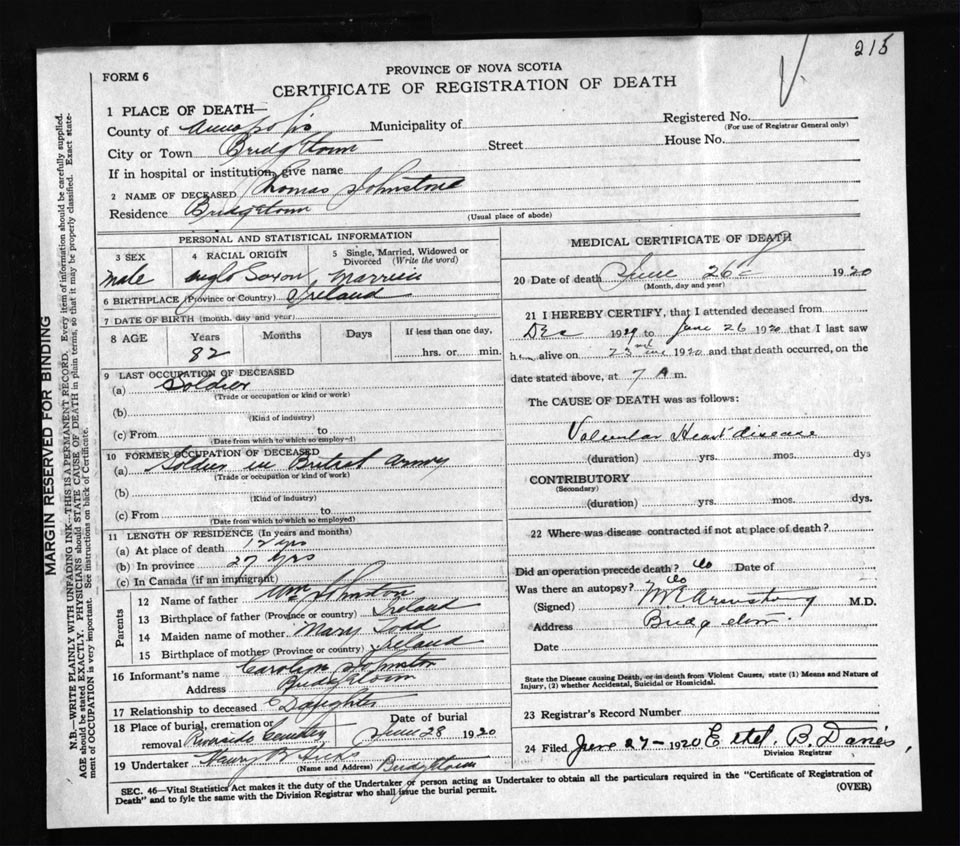 215
FORM 6
PROVINCE OF NOVA SCOTIA
CERTIFICATE OF REGISTRATION OF DEATH
1 PLACE OF DEATH—
County of Annapolis Municipality of
Registered No.
(For use of Registrar General only)
City or Town Bridgetown Street House No.
If in hospital or institution, give name
2 NAME OF DECEASED Thomas Johnstone
Residence Bridgetown
(Usual place of abode)
PERSONAL AND STATISTICAL INFORMATION
3 SEX 4 RACIAL ORIGIN 5 Single, Married, Widowed or Divorced (Write the word)
Male Anglo Saxon Married
6 BIRTHPLACE (Province or Country) Ireland
7 DATE OF BIRTH (month, day and year)
8 AGE Years Months Days If less than one day,
82 hrs. or min.
9 LAST OCCUPATION OF DECEASED
(a) Soldier
(Trade or occupation or kind or work)
(b)
(Kind of industry)
(c) From to
(Date from which to which so employ-d)
10 FORMER OCCUPATION OF DECEASED
(a) Soldier in Army
(Trade or occupation or kind of work)
(b)
(Kind of industry)
(c) From to
(Date from which to which so employed)
11 LENGTH OF RESIDENCE (In years and months)
(a) At place of death 12 yrs
(b) In province 27 yrs
(c) In Canada (if an immigrant)
Parents
12 Name of father Wm Johnston
13 Birthplace of father (Province or country) Ireland
14 Maiden name of mother Mary Todd
15 Birthplace of mother (Province or country) Ireland
16 Informant's name Johnston
Address Bridgetown
17 Relationship to deceased Daughter
18 Place of burial, cremation or Date of burial
removal Riverside Cemetery June 28 1920
19 Undertaker Hicks Bridgetown
(Name and Address)
MEDICAL CERTIFICATE OF DEATH
20 Date of death June 26 1920
(Month, day and year)
21 I HEREBY CERTIFY, that I attended deceased from
Dec 1919 to June 26 1920 that I last saw
him alive on 1920 and that death occurred, on the
date stated above, at 7 A m.
The CAUSE OF DEATH was as follows:
Valvular Heart disease
(duration) yrs. mos. dys
CONTRIBUTORY
(Secondary)
(duration) yrs. mos. dys.
22 Where was disease contracted if not at place of death?
Did an operation precede death? No Date of
Was there an autopsy? No
(Signed) Armstrong M.D.
Address Bridgetown
Date
State the Disease causing Death, or in death from Violent Causes, state (1) Means and Nature of
Injury, (2) whether Accidental, Suicidal or Homicidal.
23 Registrar's Record Number
24 Filed June 27— 1920 Ethel B. Davies,
Division Registrar
SEC. 46—Vital Statistics Act makes it the duty of the Undertaker or person acting as Undertaker to obtain all the particulars required in the "Certificate of Registration of
Death" and to fyle the same with the Division Registrar who shall issue the burial permit.
(OVER)
MARGIN RESERVED FOR BINDING
N.B.—WRITE PLAINLY WITH UNFADING INK—THIS IS A PERMANENT RECORD. Every item of information should be carefully supplied.
AGE should be stated EXACTLY. PHYSICIANS should STATE CAUSE OF DEATH in plain terms, so that it may be properly classified. Exact state-
ment of OCCUPATION is very important. See instructions on back of Certificate.